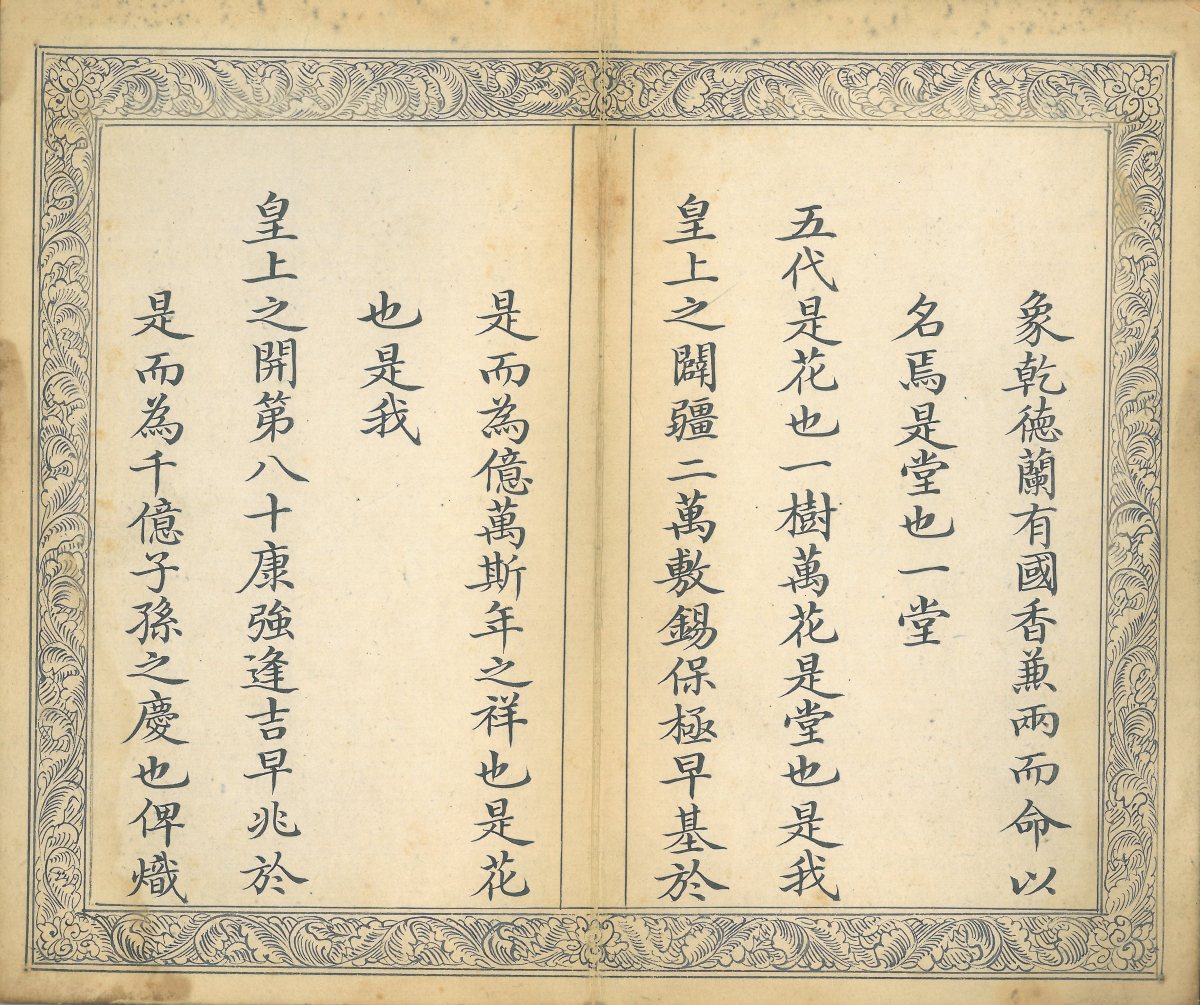 象乾德蘭有國香兼兩而命以
名焉是堂也一堂
五代是花也一樹萬花是堂也是我
皇上之闢疆二萬敷錫保極早基於
是而為億萬斯年之祥也是花
也是我
皇上之開第八十康強逢吉早兆於
是而為千億子孫之慶也俾熾